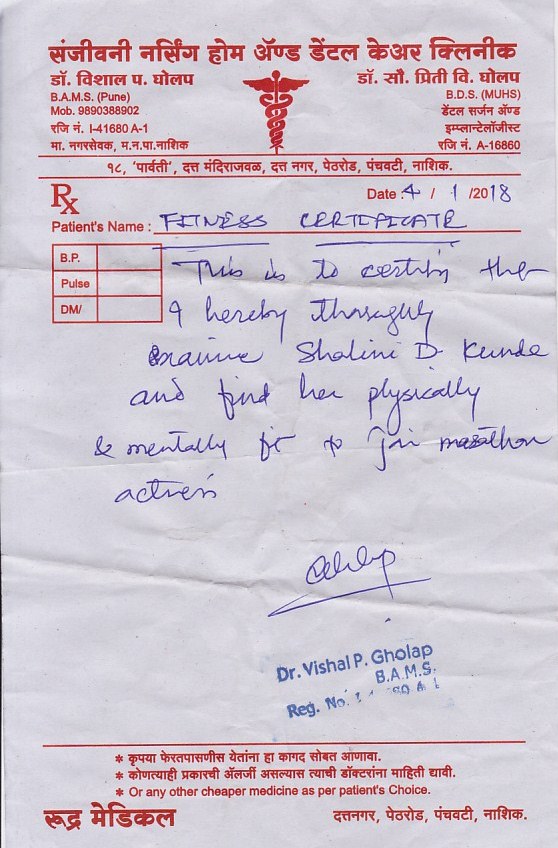 संजीवनी नर्सिंग होम ॲण्ड डेंटल केअर क्लिनीक
डॉ. विशाल प. घोलप
B.A.M.S. (Pune)
Mob. 9890388902
रजि नं. I-41680 A-1
मा. नगरसेवक, म.न.पा.नाशिक
डॉ. सौ. प्रिती वि. घोलप
B.D.S. (MUHS)
डेंटल सर्जन ॲण्ड
इम्प्लान्टेलॉजीस्ट
रजि नं. A-16860
१८, 'पार्वती', दत्त मंदिराजवळ, दत्त नगर, पेठरोड, पंचवटी, नाशिक.
Rx
Date : 4 / 1 /2018
Patient's Name : FITNESS CERTIFICATE
B.P.
Pulse
DM/
This is to certify the
I hereby thoroughly
examine Shalini D. Kunde
and find her physically
& mentally fit to join marathon
Dr. Vishal P. Gholap
B.A.M.S.
Reg. No.
* कृपया फेरतपासणीस येतांना हा कागद सोबत आणावा.
* कोणत्याही प्रकारची ॲलर्जी असल्यास त्याची डॉक्टरांना माहिती द्यावी.
* Or any other cheaper medicine as per patient's Choice.
रूद्र मेडिकल
दत्तनगर, पेठरोड, पंचवटी, नाशिक.